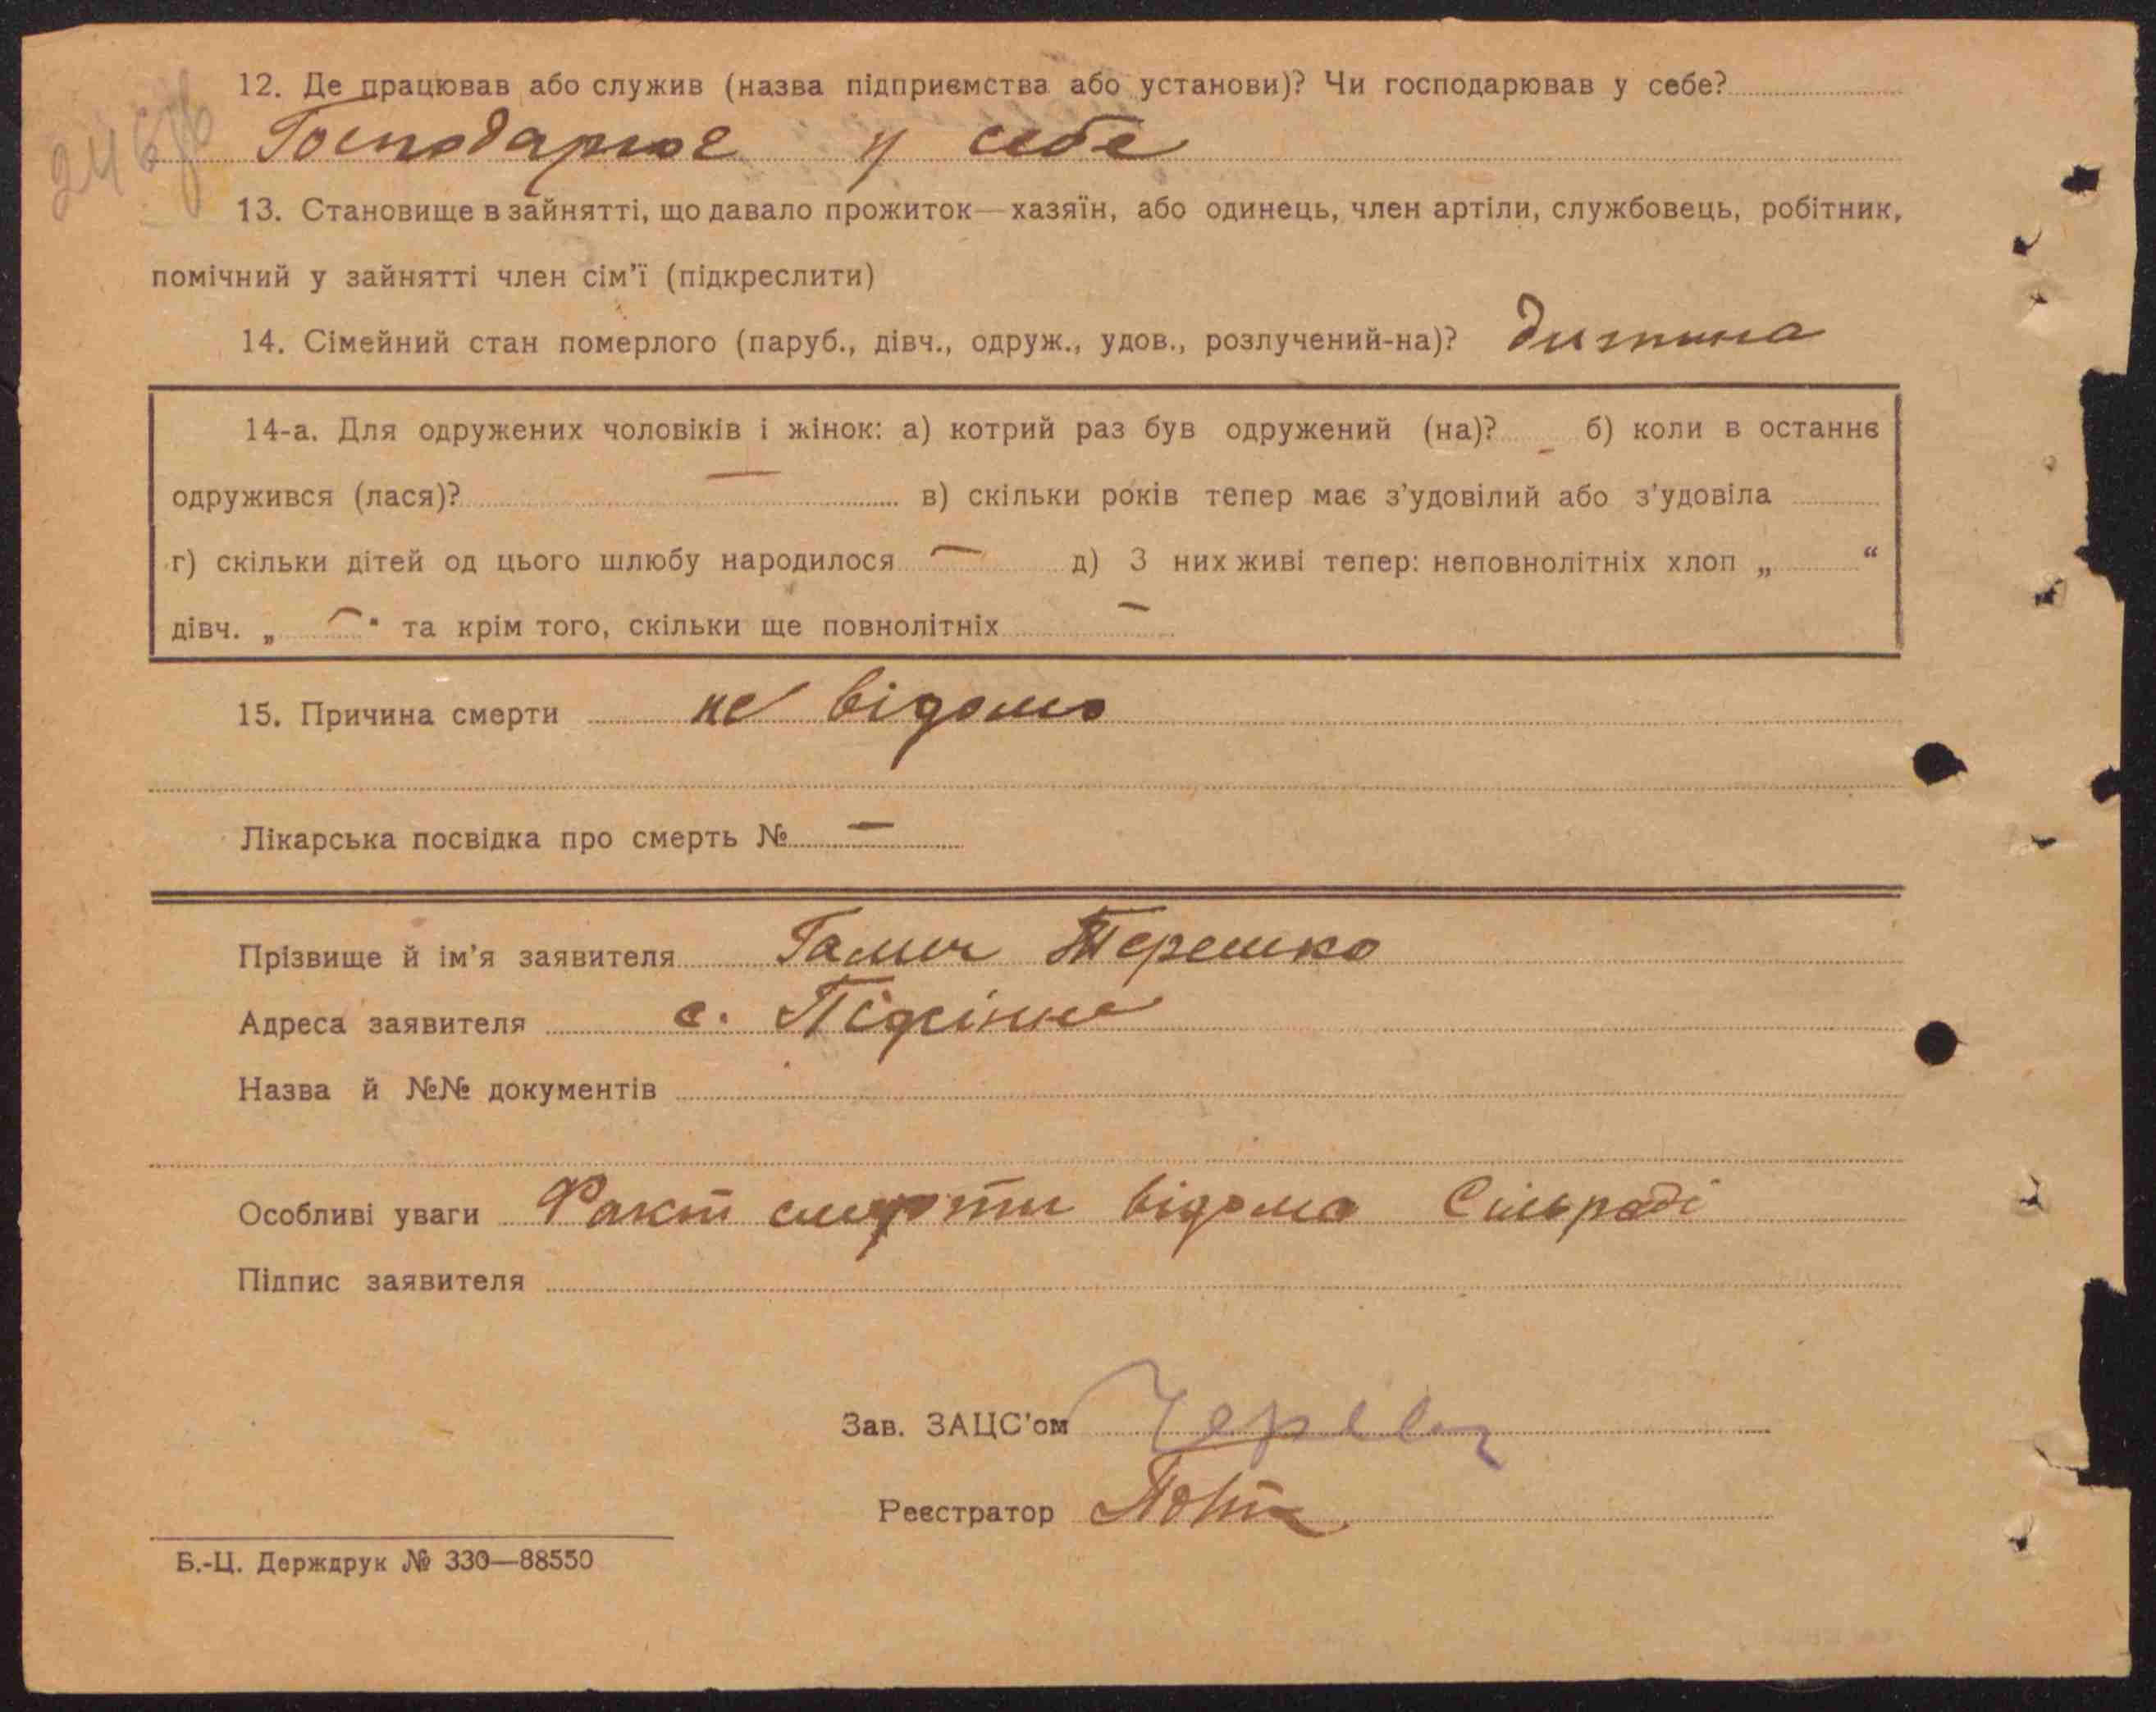 12. Де працював або служив (назва підприємства або установи)? Чи господарював у себе?
Господарює у себе
13. Становище в зайнятті, що давало прожиток—хазяїн, або одинець, член артіли, службовець, робітник,
помічний у зайнятті член сім'ї (підкреслити)
14. Сімейний стан померлого (паруб., дівч., одруж., удов., розлучений-на)? дитина
14-а. Для одружених чоловіків і жінок: а) котрий раз був одружений (на)? - б) коли в останнє
одружився (лася)? — в) скільки років тепер має з'удовілий або з'удовіла
г) скільки дітей од цього шлюбу народилося — д) З них живі тепер: неповнолітніх хлоп „ “
дівч. „ — “ та крім того, скільки ще повнолітніх —
15. Причина смерти не відомо
Лікарська посвідка про смерть № —
Прізвище й ім'я заявителя Терешко
Адреса заявителя с.
Назва й №№ документів
Особливі уваги Факт смерти відома Сільраді
Підпис заявителя
Зав. ЗАЦС'ом
Реєстратор
Б.-Ц. Держдрук № 330—88550